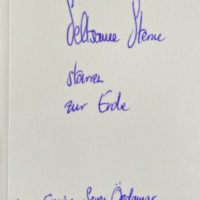 Seltsame Sterne
starren
zur Erde
Emine Sevgi Özdamar